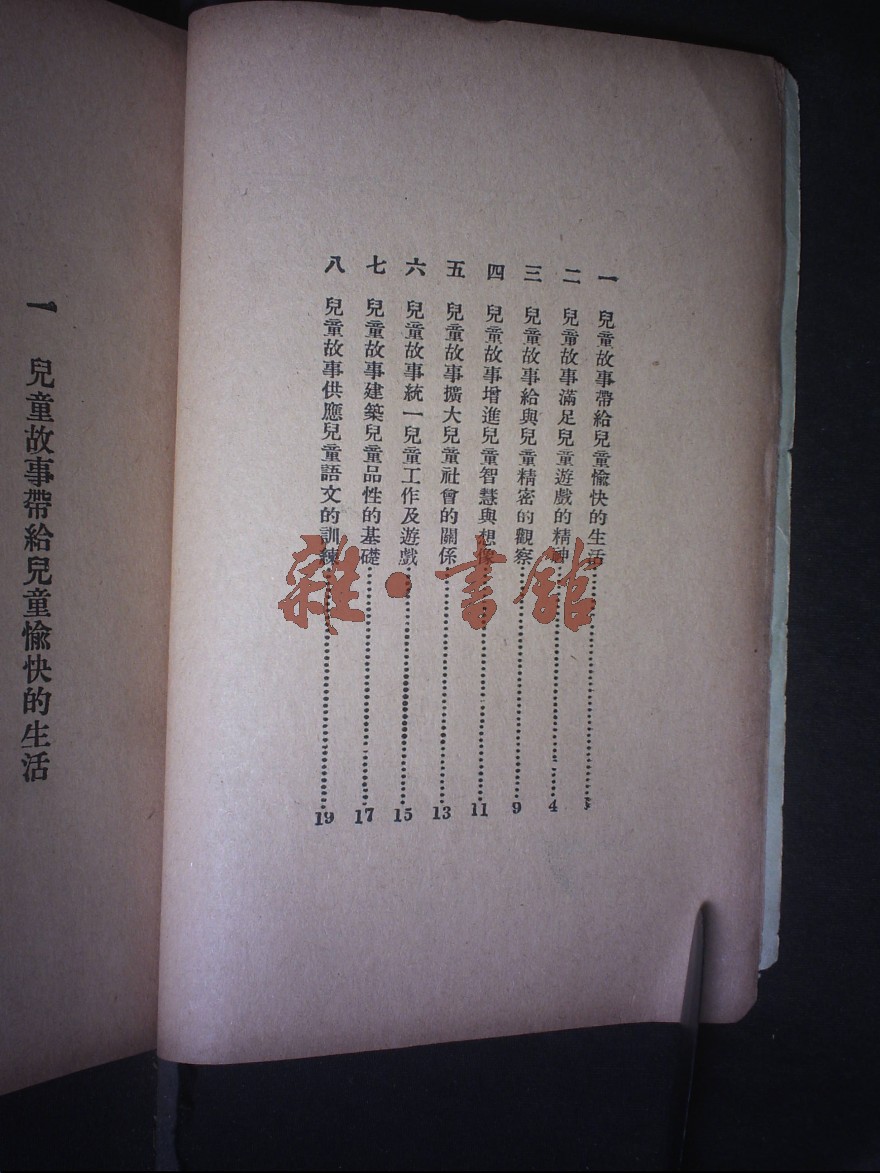 一 兒童故事帶給兒童愉快的生活
二 兒童故事滿足兒童遊戲的精神 4
三 兒童故事給與兒童精密的觀察 9
四 兒童故事增進兒童智慧與想像 11
五 兒童故事擴大兒童社會的關係 13
六 兒童故事統一兒童工作及遊戲 15
七 兒童故事建築兒童品性的基礎 17
八 兒童故事供應兒童語文的訓練 19
雜·書館
一 兒童故事帶給兒童愉快的生活